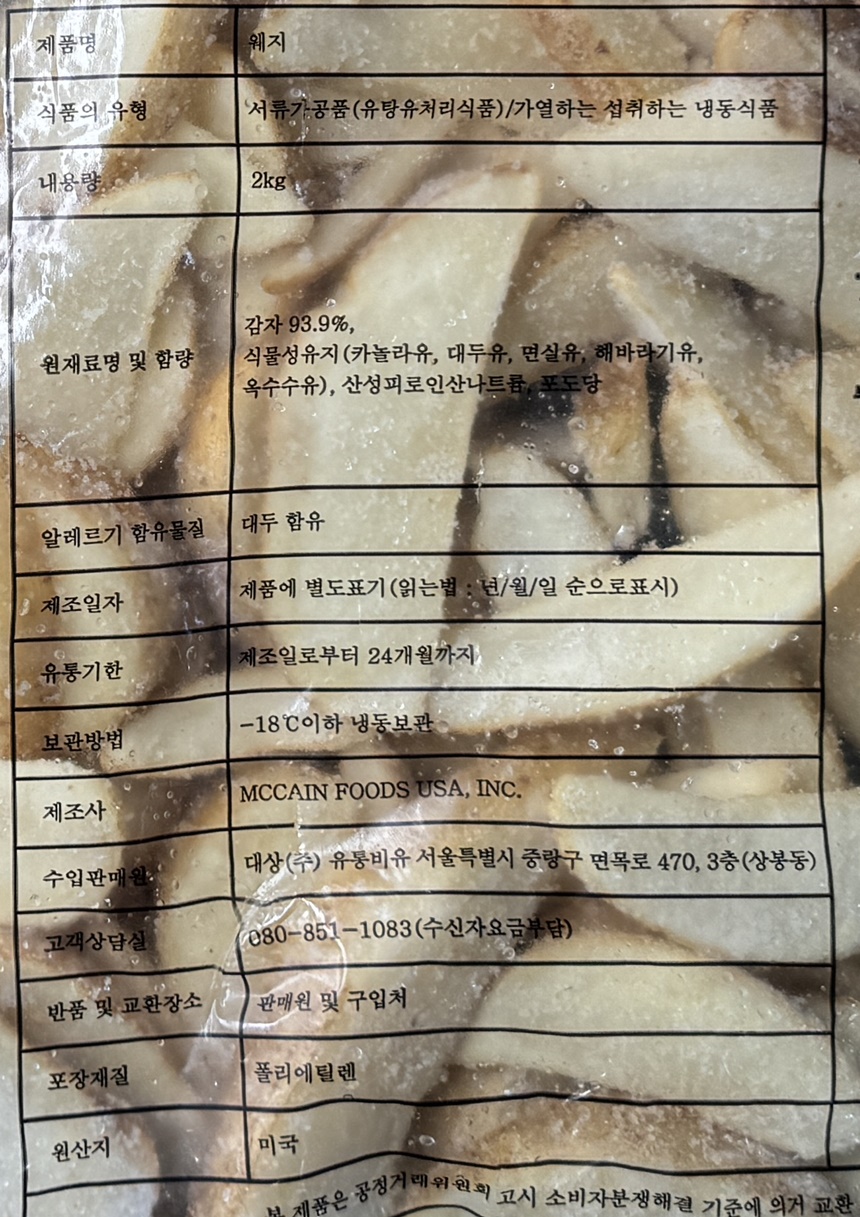 제품명 웨지
식품의 유형 서류가공품(유탕유처리식품)/가열하는 섭취하는 냉동식품
내용량 2kg
감자 93.9%,
원재료명 및 함량 식물성유지(카놀라유, 대두유, 면실유, 해바라기유,
옥수수유), 산성피로인산나트륨, 포도당
알레르기 함유물질 대두 함유
제조일자 제품에 별도표기(읽는법 : 년/월/일 순으로표시)
유통기한 제조일로부터 24개월까지
보관방법 -18℃이하 냉동보관
제조사 MCCAIN FOODS USA, INC.
수입판매원 대상(주) 유통비유 서울특별시 중랑구 면목로 470, 3층(상봉동)
고객상담실 080-851-1083(수신자요금부담)
반품 및 교환장소 판매원 및 구입처
포장재질 폴리에틸렌
원산지 미국
본 제품은 공정거래위원회 고시 소비자분쟁해결 기준에 의거 교환